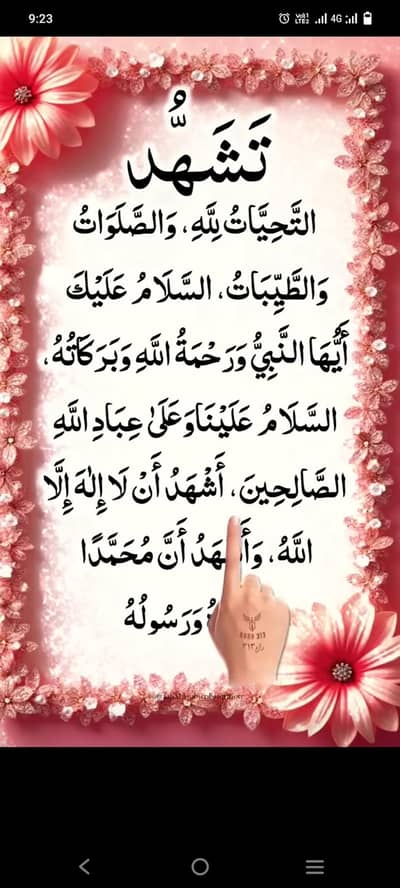 9:23
VoLTE2
4G
تَشَهُّد
التَّحِيَّاتُ لِلَّهِ، وَالصَّلَوَاتُ
وَالطَّيِّبَاتُ، السَّلَامُ عَلَيْكَ
أَيُّهَا النَّبِيُّ وَرَحْمَةُ اللَّهِ وَبَرَكَاتُهُ،
السَّلَامُ عَلَيْنَا وَعَلَىٰ عِبَادِ اللَّهِ
الصَّالِحِينَ، أَشْهَدُ أَنْ لَا إِلٰهَ إِلَّا
اللَّهُ، وَأَشْهَدُ أَنَّ مُحَمَّدًا
وَرَسُولُهُ